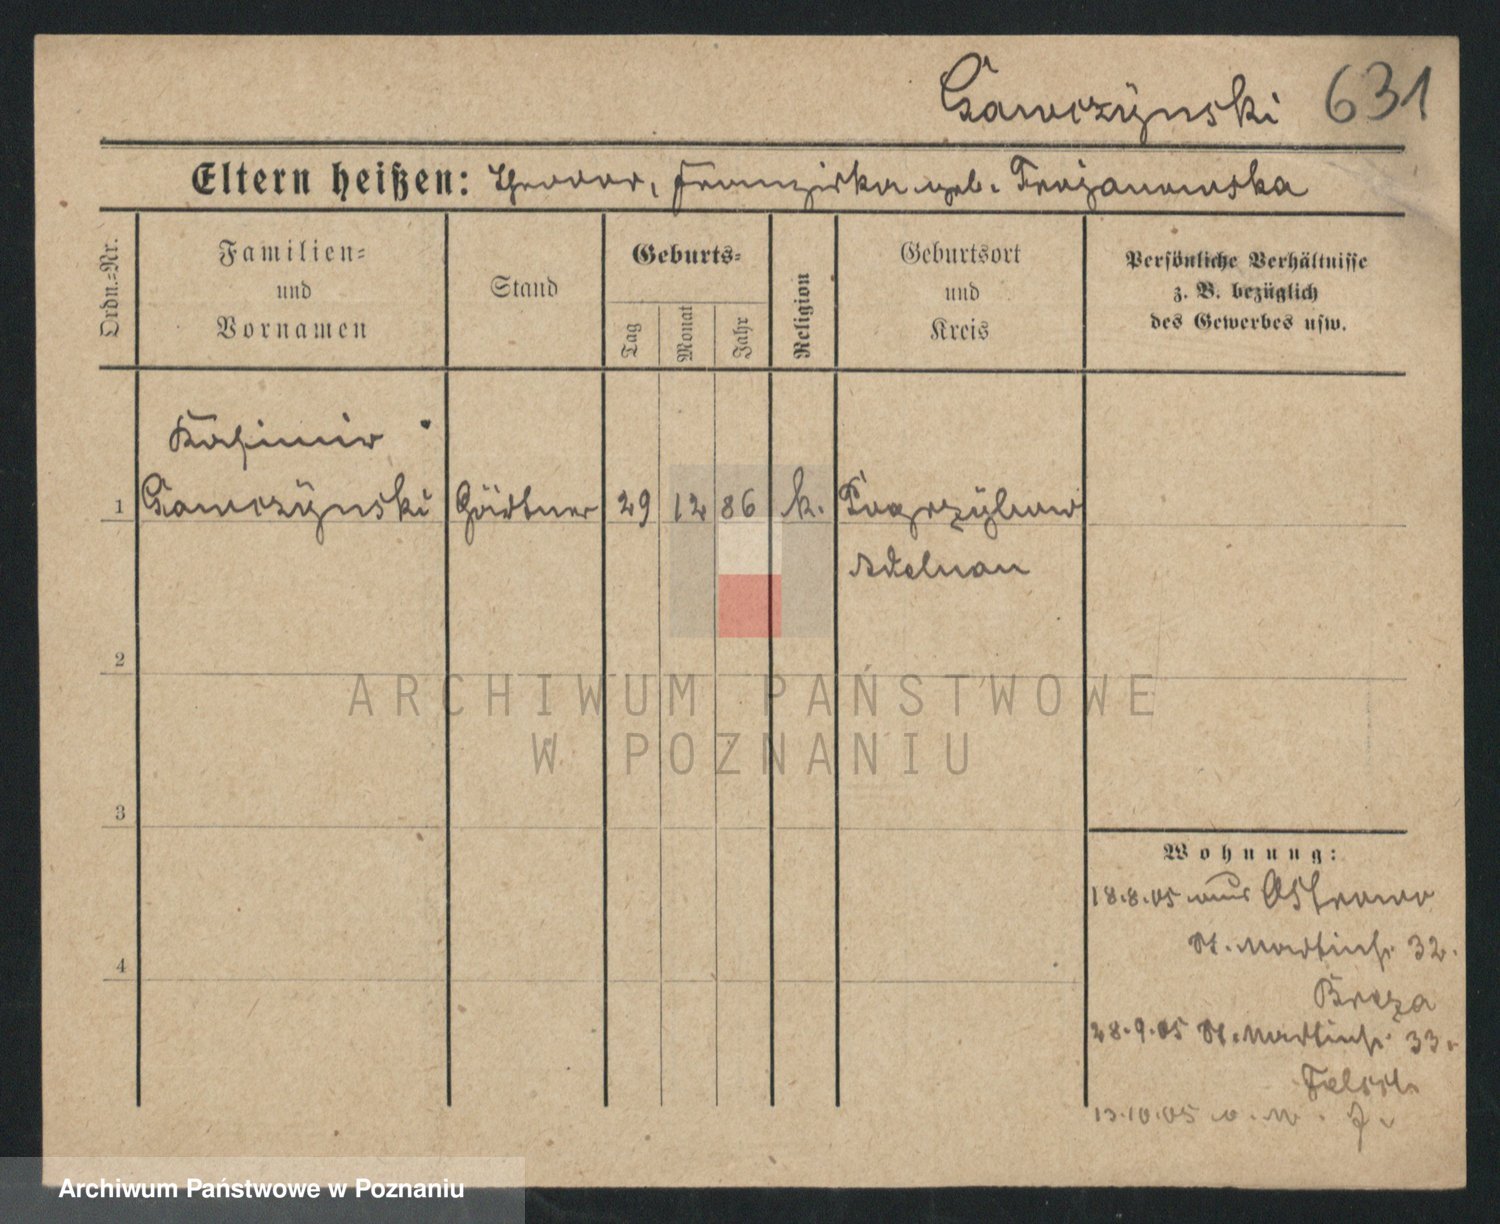 Gawczÿnski 631
Eltern heißen: Theodor, Franziska geb. Trojanowska
Ordn.-Nr.
Familien-
und
Vornamen
Stand
Geburts-
Tag
Monat
Jahr
Religion
Geburtsort
und
Kreis
Persönliche Verhältnisse
z. B. bezüglich
des Gewerbes usw.
Kasimir
1 Gawczÿnski Gärtner 29 12 86 k. Pogrzÿbow
Adelnau
2
3
4
ARCHIWUM PAŃSTWOWE
W POZNANIU
Wohnung:
18.8.05 aus Ostrowo
St. Martinstr. 32.
28.9.05 St. Martinstr. 33.
13.10.05
Archiwum Państwowe w Poznaniu